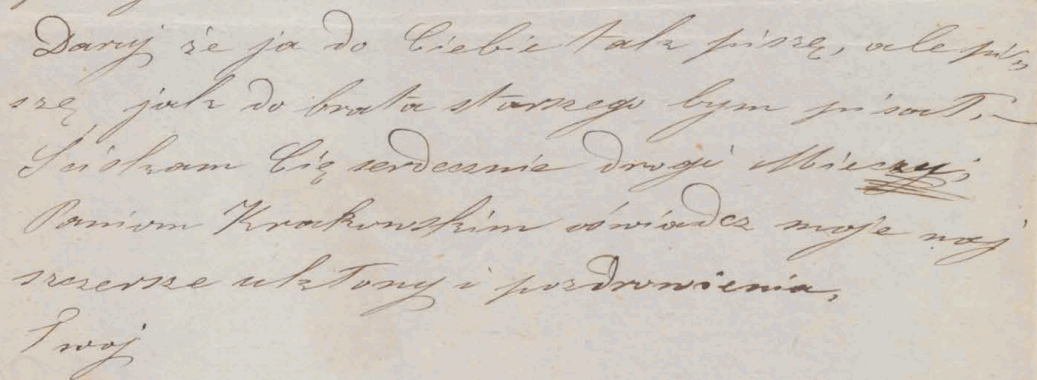 Daruj że ja do Ciebie tak piszę, ale pi„
szę jak do brata starszego bym pisał. –
Ściskam Cię serdecznie drogi Mieczy,
Paniom Krakowskim oświadcz moje naj
szczersze ukłony i pozdrowienia,
Twoj